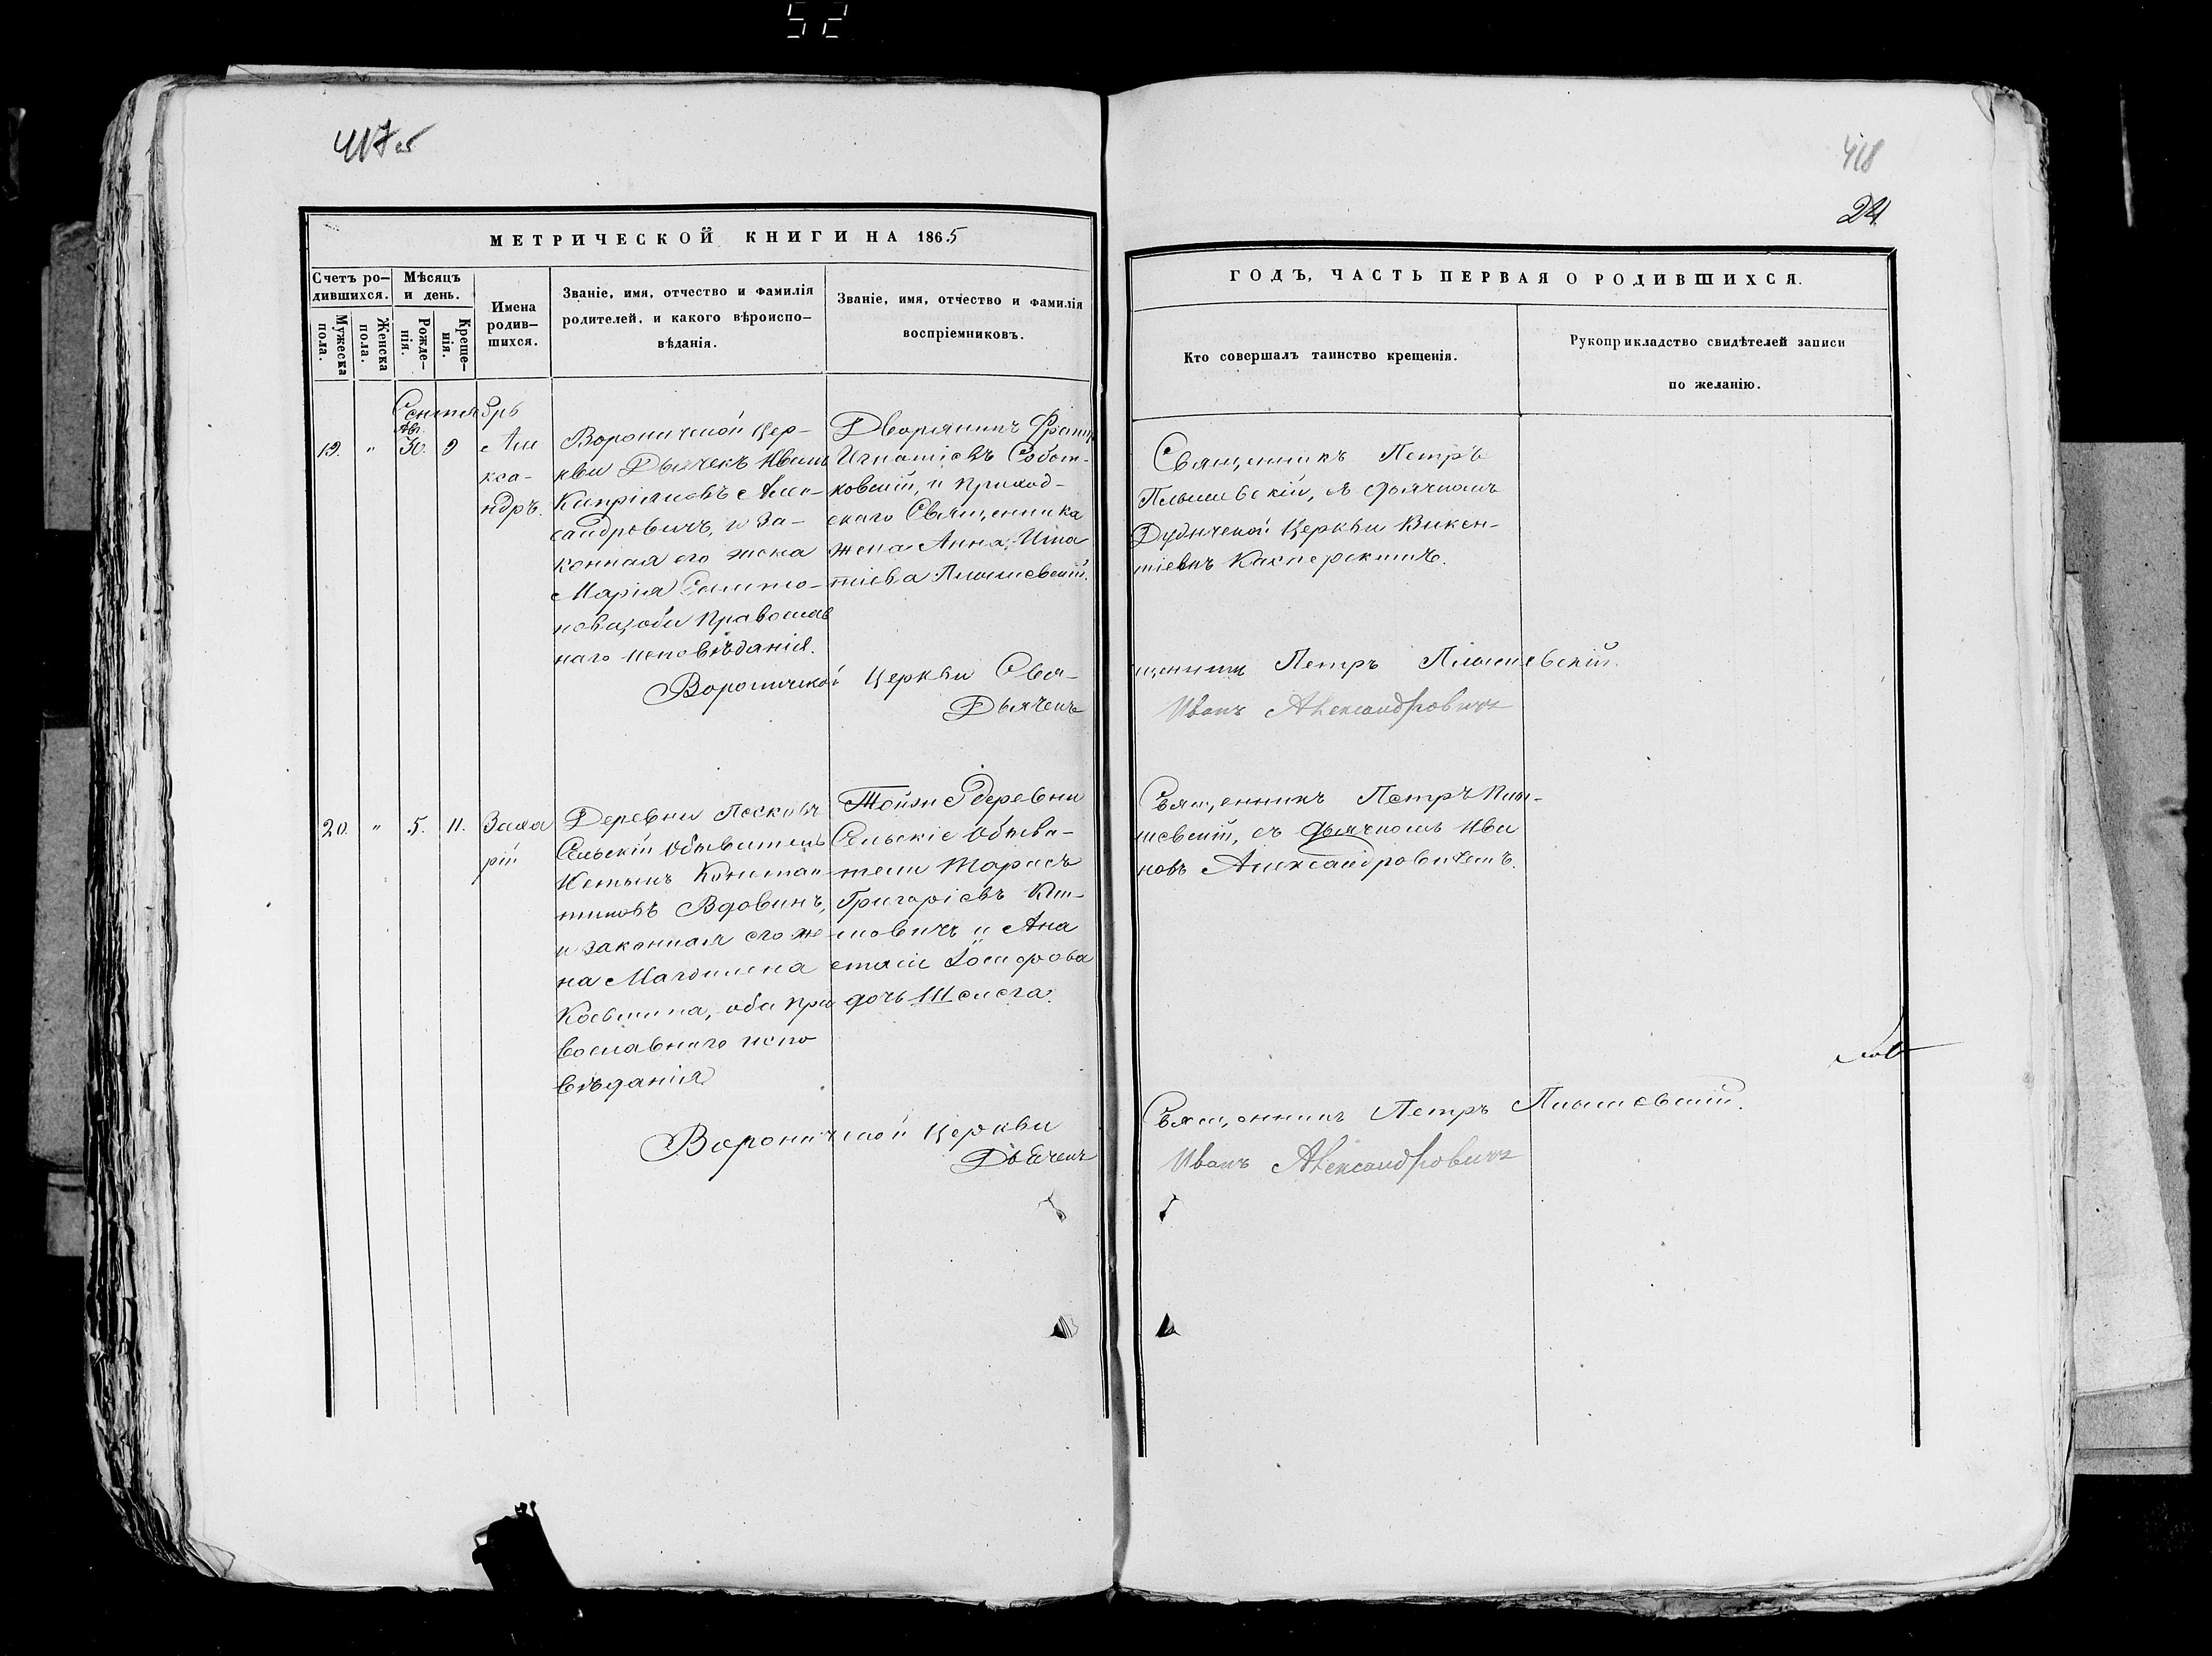 52
417 об
418
24
МЕТРИЧЕСКОЙ КНИГИ НА 1865
ГОДЪ, ЧАСТЬ ПЕРВАЯ О РОДИВШИХСЯ.
Счетъ ро-
дившихся.
Мужеска
пола.
Женска
пола.
Мѣсяцъ
и день.
Рожде-
нія.
Креще-
нія.
Имена
родив-
шихся.
Званіе, имя, отчество и фамилія
родителей, и какого вѣроиспо-
вѣданія.
Званіе, имя, отчество и фамилія
воспріемниковъ.
Кто совершалъ таинство крещенія.
Рукоприкладство свидѣтелей записи
по желанію.
Сентябрь
Ав.
19. " 30. 9
Але
кса-
ндръ.
Вороничской Цер-
кви Дьячекъ Иванъ
Кипріановъ Алек-
сандровичъ, и за-
конная его жена
Марія
оба Православ
наго исповѣданія.
Дворянинъ Францъ
Игнатіевъ Собот-
ковскій, и приход-
скаго Священника
жена Анна Игна
тіева Плышевскій.
Священникъ Петръ
Плышевскій, съ дьячкомъ
Дудичской Церкви Викен-
тіемъ
Вороничской Церкви Свя-
щенникъ Петръ Плышевскій.
Дьячекъ
Иванъ Александровичъ
20. " 5. 11.
Заха
рій
Деревни Песковъ
Сельскій Обыватель
Константи-
новъ Вдовинъ,
и законная его же-
на Магдалина
Косьмина, оба Пра
вославнаго испо
вѣданія
Тойже деревни
Сельскіе Обыва-
тели Тарасъ
Григорієвъ Кли-
мовичъ и Ана
стасія Іосифова
дочь Шемега.
Священникъ Петръ Плы-
шевскій, съ дьячкомъ Ива
номъ Александровичемъ.
Вороничской Церкви
Священникъ Петръ Плышевскій.
Дьячекъ
Иванъ Александровичъ